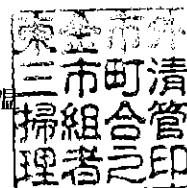 東金市外
三市町清
掃組合管
理者之印